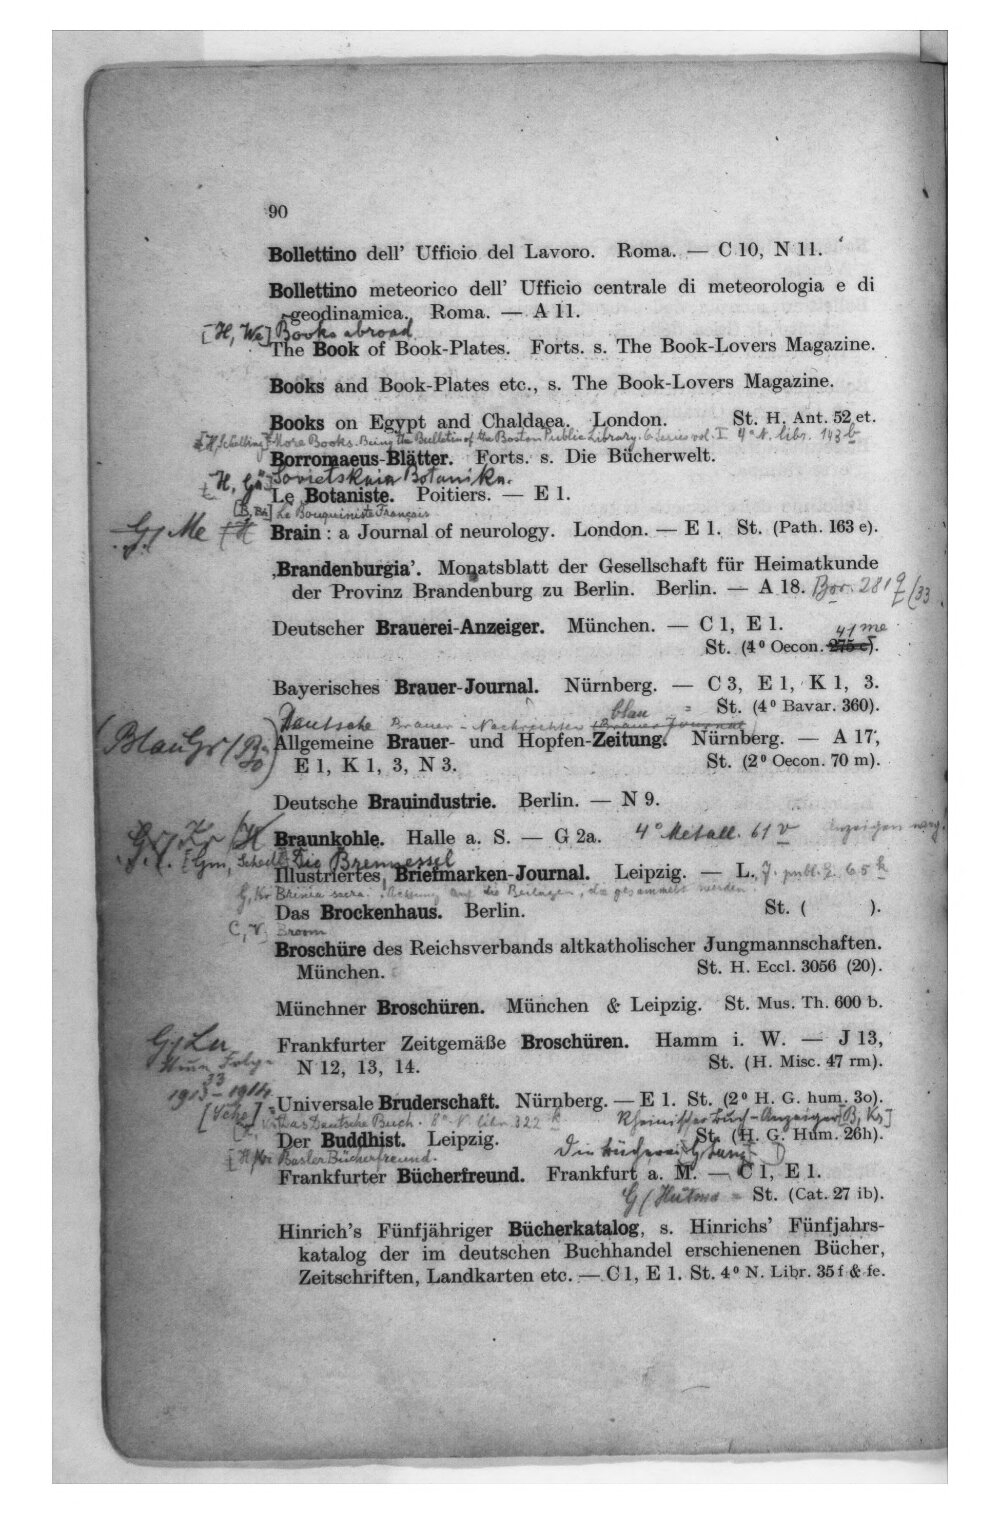 90
Bollettino dell' Ufficio del Lavoro. Roma. — C 10, N 11.
Bollettino meteorico dell' Ufficio centrale di meteorologia e di
geodinamica. Roma. — A 11.
[H, We] Books abroad
The Book of Book-Plates. Forts. s. The Book-Lovers Magazine.
Books and Book-Plates etc., s. The Book-Lovers Magazine.
Books on Egypt and Chaldaea. London. St. H. Ant. 52 et.
More Books. Being the Bulletin of the Boston Public Library. 6 Series vol. I 4° N. libr. 143 b
Borromaeus-Blätter. Forts. s. Die Bücherwelt.
H, Gä Sovietskaia Botanika.
Le Botaniste. Poitiers. — E 1.
Le Bouquiniste Français
G/ Me
Brain: a Journal of neurology. London. — E 1. St. (Path. 163 e).
‚Brandenburgia'. Monatsblatt der Gesellschaft für Heimatkunde
der Provinz Brandenburg zu Berlin. Berlin. — A 18. Bor. 281
Deutscher Brauerei-Anzeiger. München. — C 1, E 1.
41 me
St. (4° Oecon. 275 c).
Bayerisches Brauer-Journal. Nürnberg. — C 3, E 1, K 1, 3.
blau = St. (4° Bavar. 360).
Deutsche Brauer-Nachrichten (Brauer Journal)
Allgemeine Brauer- und Hopfen-Zeitung. Nürnberg. — A 17,
E 1, K 1, 3, N 3. St. (2° Oecon. 70 m).
Deutsche Brauindustrie. Berlin. — N 9.
Braunkohle. Halle a. S. — G 2a. 4° Metall. 61 v Anzeigen weg.
Die Brennessel
Illustriertes Briefmarken-Journal. Leipzig. — L. J. publ. g. 65 k
G, Kr Brixia sacra. Achtung auf die Beilagen, die gesammelt werden.
Das Brockenhaus. Berlin. St. ( ).
C, V Broom
Broschüre des Reichsverbands altkatholischer Jungmannschaften.
München. St. H. Eccl. 3056 (20).
Münchner Broschüren. München & Leipzig. St. Mus. Th. 600 b.
G/ Lu
Frankfurter Zeitgemäße Broschüren. Hamm i. W. — J 13,
N 12, 13, 14. St. (H. Misc. 47 rm).
1913 - 1914
Universale Bruderschaft. Nürnberg. — E 1. St. (2° H. G. hum. 3o).
Das Deutsche Buch. 8° N. libr. 322 k Rheinischer Buch-Anzeiger [B, Kr]
Der Buddhist. Leipzig. St. (H. G. Hum. 26h).
Basler Bücherfreund.
Frankfurter Bücherfreund. Frankfurt a. M. — C 1, E 1.
St. (Cat. 27 ib).
Hinrich's Fünfjähriger Bücherkatalog, s. Hinrichs' Fünfjahrs-
katalog der im deutschen Buchhandel erschienenen Bücher,
Zeitschriften, Landkarten etc. — C 1, E 1. St. 4° N. Libr. 35 f & fe.